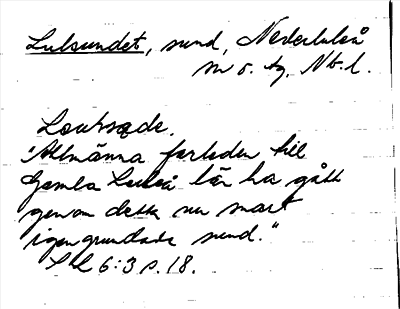 Lulsundet, sund, Nederluleå
sn o. tg, Nb. l.
Lantsæde.
"Allmänna farleden till
Gamla Luleå lär ha gått
genom detta nu snart
igengrundade sund."
SL 6:3 s. 18.